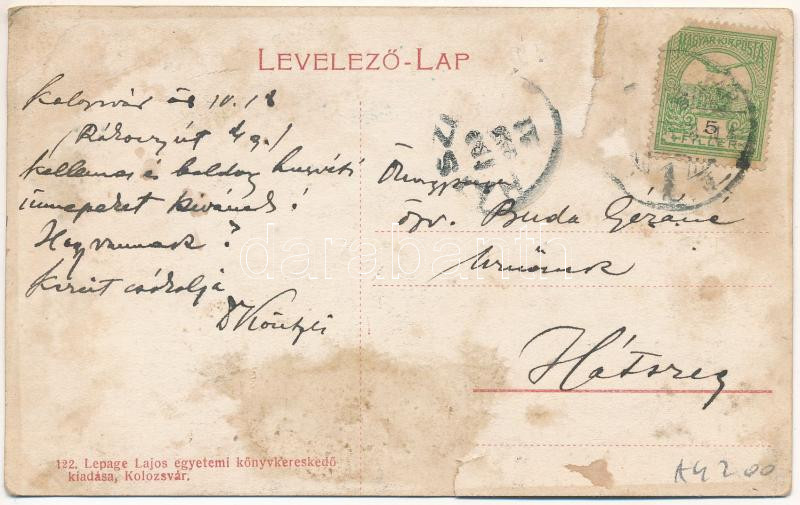 LEVELEZŐ-LAP
MAGYAR·KIR·POSTA
5
FILLÉR
Kolozsvár 10. 18
Rákoczy út
kellemes és boldog husvéti
ünnepeket kivánok!
Hogy vannak?
Kezeit csókolja
Dr
özv. Buda Gézáné
Urnőnek
Hátszeg
darabanth
122. Lepage Lajos egyetemi könyvkereskedő
kiadása, Kolozsvár.